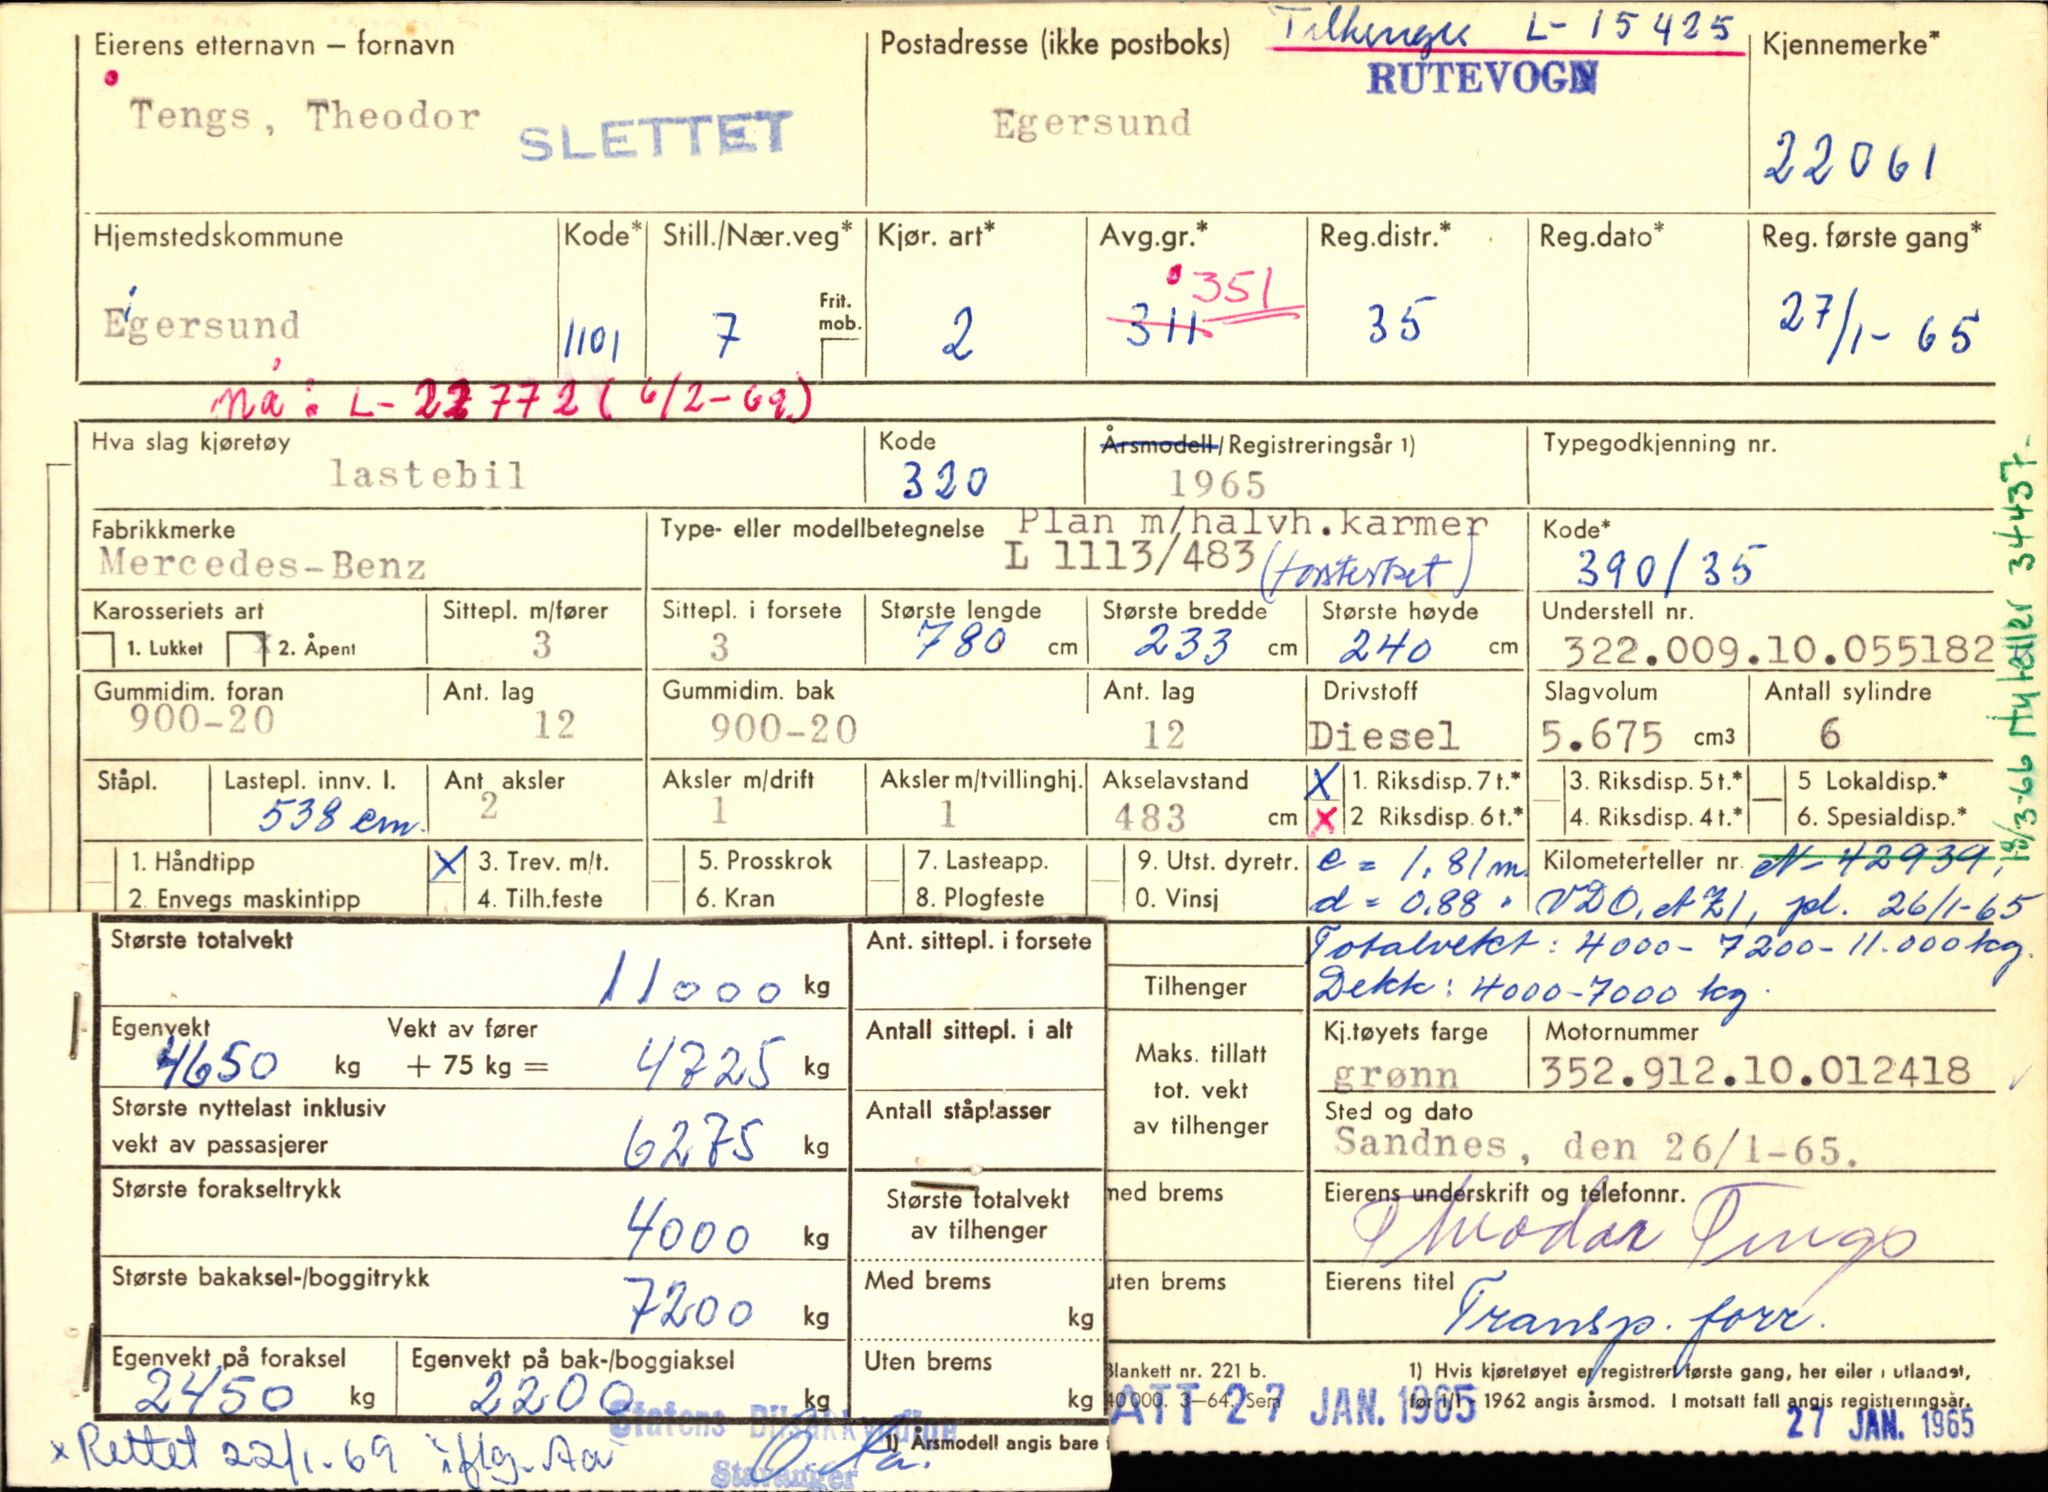 Tilhenger L-15425
Eierens etternavn – fornavn
Postadresse (ikke postboks)
Kjennemerke*
RUTEVOGN
Tengs, Theodor
SLETTET
Egersund
22061
Hjemstedskommune Kode* Still./Nær.veg* Kjør. art* Avg.gr.* Reg.distr.* Reg.dato* Reg. første gang*
351
Egersund 1101 7 Frit. mob. 2 311 35 27/1-65
nå: L-22772 (6/2-69)
Hva slag kjøretøy Kode Årsmodell/Registreringsår 1) Typegodkjenning nr.
lastebil 320 1965
Fabrikkmerke Type- eller modellbetegnelse Plan m/halvh.karmer Kode*
Mercedes-Benz L 1113/483 (forsterket) 390/35
Karosseriets art Sittepl. m/fører Sittepl. i forsete Største lengde Største bredde Største høyde Understell nr.
1. Lukket x 2. Åpent 3 3 780 cm 233 cm 240 cm 322.009.10.055182
Gummidim. foran Ant. lag Gummidim. bak Ant. lag Drivstoff Slagvolum Antall sylindre
900-20 12 900-20 12 Diesel 5.675 cm3 6
Ståpl. Lastepl. innv. l. Ant. aksler Aksler m/drift Aksler m/tvillinghj. Akselavstand X 1. Riksdisp. 7 t.* 3. Riksdisp. 5 t.* 5 Lokaldisp.*
538 cm. 2 1 1 483 cm x 2 Riksdisp. 6 t.* 4. Riksdisp. 4 t.* 6. Spesialdisp.*
1. Håndtipp X 3. Trev. m/t. 5. Prosskrok 7. Lasteapp. 9. Utst. dyretr. c = 1.81 m Kilometerteller nr. N-42939,
2. Envegs maskintipp 4. Tilh.feste 6. Kran 8. Plogfeste 0. Vinsj d = 0.88 " VDO, pl. 26/1-65
18/3-66 Ny teller 34437-
Største totalvekt
11000 kg
Egenvekt Vekt av fører
4650 kg + 75 kg = 4725 kg
Største nyttelast inklusiv
vekt av passasjerer 6275 kg
Største forakseltrykk
4000 kg
Største bakaksel-/boggitrykk
7200 kg
Egenvekt på foraksel Egenvekt på bak-/boggiaksel
2450 kg 2200 kg
Ant. sittepl. i forsete
Antall sittepl. i alt
Antall ståplasser
Største totalvekt
av tilhenger
Med brems
kg
Uten brems
kg
Statens Bilsakkyndige
Stavanger
1) Årsmodell angis bare
x Rettet 22/1-69 iflg.
Tilhenger
Maks. tillatt
tot. vekt
av tilhenger
med brems
uten brems
Totalvekt: 4000-7200-11.000 kg.
Dekk: 4000-7000 kg.
Kj.tøyets farge Motornummer
grønn 352.912.10.012418
Sted og dato
Sandnes, den 26/1-65.
Eierens underskrift og telefonnr.
Theodor Tengs
Eierens titel
Transp. forr.
Blankett nr. 221 b.
40 000. 3–64. Sem
ATT 27 JAN. 1965
1) Hvis kjøretøyet er registrert første gang, her eller i utlandet,
før 1/1 - 1962 angis årsmod. I motsatt fall angis registreringsår.
27 JAN. 1965